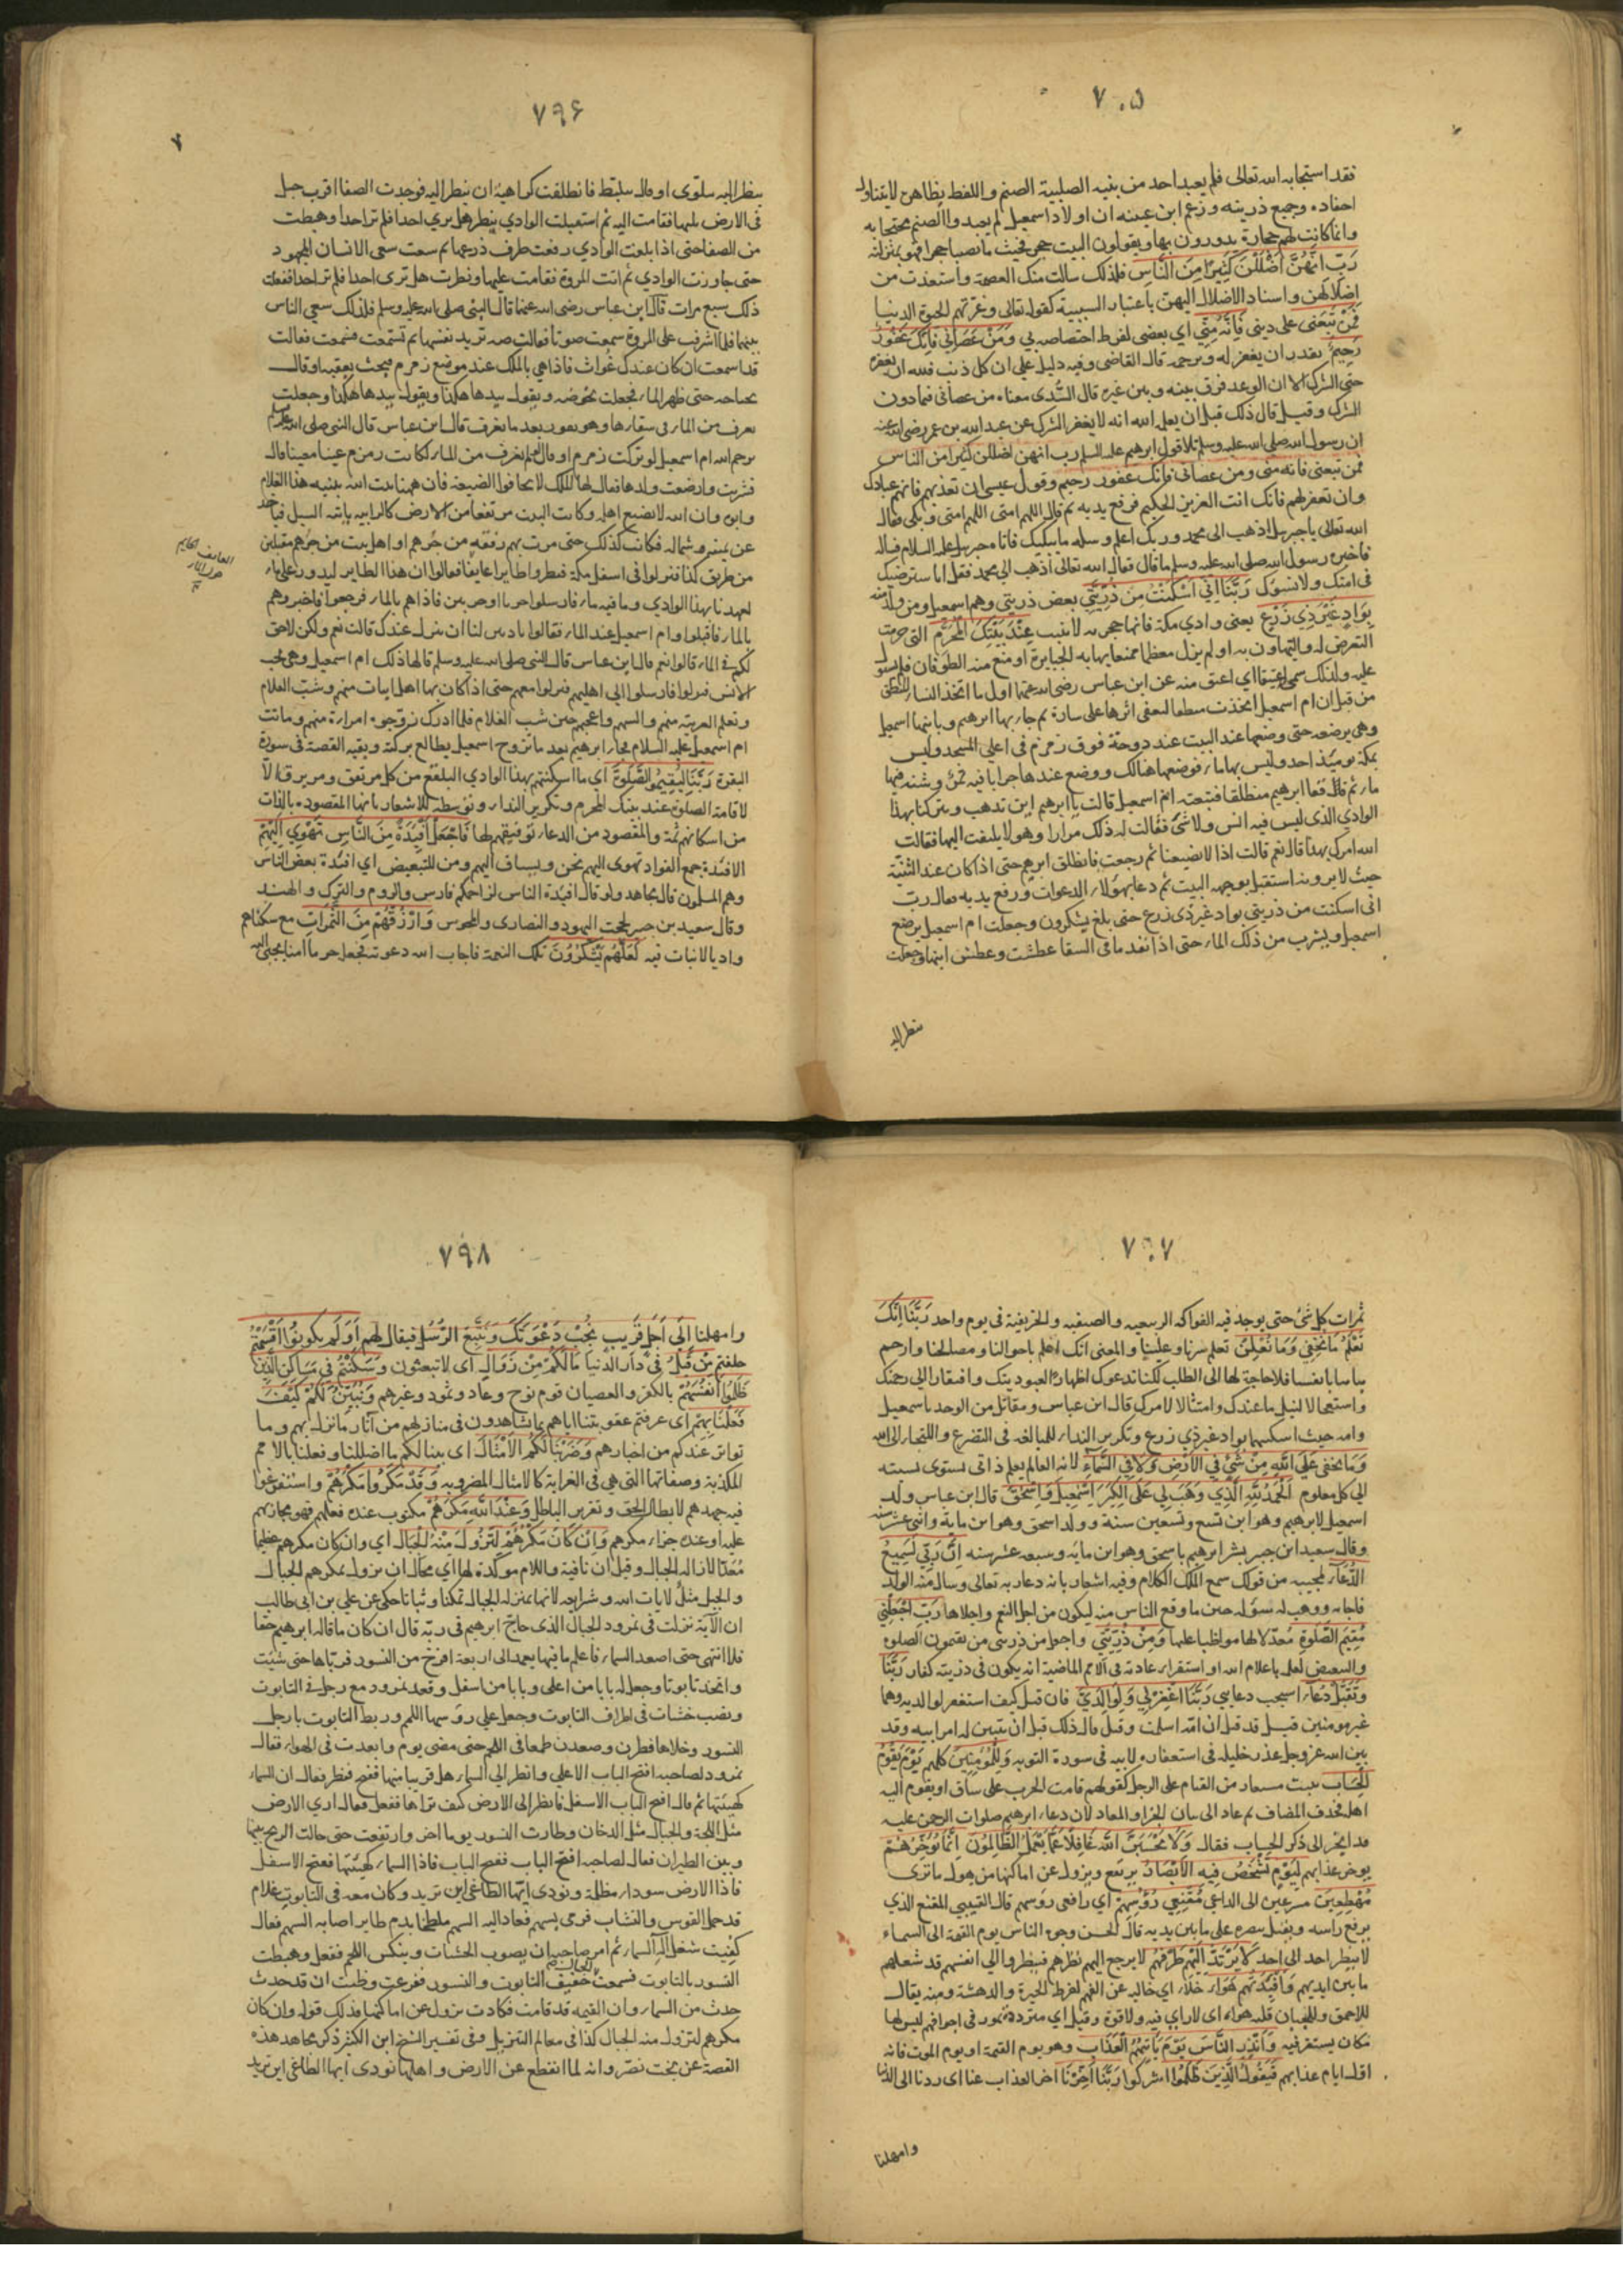 ٧٠٥
فقد استجابه الله تعالى فلم يعبد احد من بنيه الصلبية الصنم واللفظ بظاهره لا يتناول
احفاده وجميع ذريته وزعم ابن عيينه ان اولاد اسمعيل لم يعبدوا الصنم محتجا به
وانما كانت لهم حجارة يدورون بها ويقولون البيت حجر فحيث ما نصبنا حجرا فهو بمنزلته
رَبِّ اِنَّهُنَّ اَضْلَلْنَ كَثِيرًا مِنَ النَّاسِ فلذلك سالت منك العصمة واستعذت من
اضلالهن واسناد الاضلال اليهن باعتبار السببية كقوله تعالى وغرتهم الحيوة الدنيا
فَمَنْ تَبِعَنِي على ديني فَاِنَّهُ مِنِّي اي بعضي لفرط اختصاصه بي وَمَنْ عَصَانِي فَاِنَّكَ غَفُورٌ
رَحِيمٌ يقدر ان يغفر له ويرحمه قال القاضي وفيه دليل على ان كل ذنب فلله ان يغفره
حتى الشرك الا ان الوعد فرق بينه وبين غيره قال السُّدى معناه من عصاني فيما دون
الشرك وقيل قال ذلك قبل ان يعلم الله انه لا يغفر الشرك عن عبد الله بن عمر رضى الله عنه
ان رسول الله صلى الله عليه وسلم تلا قول ابرهيم عليه السلم رب انهن اضللن كثيرا من الناس
فمن تبعني فانه مني ومن عصاني فانك غفور رحيم وقول عيسى ان تعذبهم فانهم عبادك
وان تغفر لهم فانك انت العزيز الحكيم فرفع يديه ثم قال اللهم امتى اللهم امتى وبكى فقال
الله تعالى يا جبرئل اذهب الى محمد وربك اعلم وسله ما يبكيك فاتاه جبرئل عليه السلام فساله
فاخبره رسول الله صلى الله عليه وسلم ما قال فقال الله تعالى اذهب الى محمد فقل انا سنرضيك
فى امتك ولا نسؤك رَبَّنَا اِنِّي اَسْكَنْتُ مِنْ ذُرِّيَّتِي بعض ذريتي وهم اسمعيل ومن ولد منه
بِوَادٍ غَيْرِ ذِي زَرْعٍ يعني وادي مكة فانها حجريه لا تنبت عِنْدَ بَيْتِكَ الْمُحَرَّمِ التي حرمت
التعرض له والتهاون به او لم يزل معظما ممنعا يهابه الجبابرة او منع منه الطوفان فلم يستول
عليه ولذلك سمي عتيقا اي اعتق منه عن ابن عباس رضى الله عنهما اول ما اتخذ النساء المنطق
من قبل ان ام اسمعيل اتخذت منطقا لتعفي اثرها على سارة ثم جاء بها ابرهيم وبابنها اسمعيل
وهي ترضعه حتى وضعهما عند البيت عند دوحة فوق زمزم في اعلى المسجد وليس
بمكة يومئذ احد وليس بها ماء فوضعهما هنالك ووضع عندهما جرابا فيه تمر وشنة فيها
ماء ثم قفا ابرهيم منطلقا فتبعته ام اسمعيل قالت يا ابرهيم اين تذهب وتتركنا بهذا
الوادي الذي ليس فيه انس ولا شئ فقالت له ذلك مرارا وهو لا يلتفت اليها فقالت
الله امرك بهذا قال نعم قالت اذا لا يضيعنا ثم رجعت فانطلق ابرهيم حتى اذا كان عند الثنية
حيث لا يرونه استقبل بوجهه البيت ثم دعا بهؤلاء الدعوات ورفع يديه فقال رب
اني اسكنت من ذريتي بواد غير ذى زرع حتى بلغ يشكرون وجعلت ام اسمعيل ترضع
اسمعيل وتشرب من ذلك الماء حتى اذا نفد ما في السقا عطشت وعطش ابنها وجعلت
تنظر اليه
٧٩۶
تنظر اليه يتلوى او قال يتلبط فانطلقت كراهية ان تنظر اليه فوجدت الصفا اقرب جبل
فى الارض يليها فقامت اليه ثم استقبلت الوادي تنظر هل يري احدا فلم تر احدا وهبطت
من الصفا حتى اذا بلغت الوادي رفعت طرف ذرعها ثم سعت سعى الانسان المجهود
حتى جاوزت الوادي ثم اتت المروة فقامت عليها ونظرت هل ترى احدا فلم تر احدا ففعلت
ذلك سبع مرات قال ابن عباس رضى الله عنهما قال النبي صلى الله عليه وسلم فلذلك سعي الناس
بينهما فلما اشرفت على المروة سمعت صوتا فقالت صه تريد نفسها ثم تسمعت فسمعت فقالت
قد اسمعت ان كان عندك غواث فاذا هي بالملك عند موضع زمزم فبحث بعقبه او قال
بجناحه حتى ظهر الماء فجعلت تحوضه وتقول بيدها هكذا وتقول بيدها هكذا وجعلت
تغرف من الماء في سقائها وهو يفور بعد ما تغرف قال ابن عباس قال النبي صلى الله عليه وسلم
يرحم الله ام اسمعيل لو تركت زمزم او قال لو لم تغرف من الماء لكانت زمزم عينا معينا قال
فشربت وارضعت ولدها فقال لها الملك لا تخافوا الضيعة فان ههنا بيت الله يبنيه هذا الغلام
وابوه وان الله لا يضيع اهله وكانت البيت مرتفعا من الارض كالرابيه ياتيه السيل فياخذ
عن يمينه وشماله فكانت كذلك حتى مرت بهم رفقة من جُرهم او اهل بيت من جرهم مقبلين
من طريق كذا فنزلوا في اسفل مكة فنظروا طايرا عايفا فقالوا ان هذا الطاير ليدور على ماء
لعهدنا بهذا الوادي وما فيه ماء فارسلوا جريا او جريين فاذا هم بالماء فرجعوا فاخبروهم
بالماء فاقبلوا وام اسمعيل عند الماء فقالوا تاذنين لنا ان ننزل عندك قالت نعم ولكن لا حق
لكم في الماء قالوا نعم قال ابن عباس قال النبي صلى الله عليه وسلم قالها ذلك ام اسمعيل وهي تحب
الانس فنزلوا فارسلوا الى اهليهم فنزلوا معهم حتى اذا كان بها اهل ابيات منهم وشبّ الغلام
وتعلم العربية منهم وانسهم واعجبهم حين شب الغلام فلما ادرك زوجوه امراة منهم وماتت
ام اسمعيل عليه السلام فجاء ابرهيم بعد ما تزوج اسمعيل يطالع بركته وبقية القصة فى سورة
البقرة رَبَّنَا لِيُقِيمُوا الصَّلٰوةَ اى ما اسكنتهم بهذا الوادي البلقع من كل مرتفق ومرتزق الا
لاقامة الصلوة عند بيتك المحرم وتكرير النداء وتوسطه للاشعار بانها المقصودة بالذات
من اسكانهم ثمة والمقصود من الدعاء توفيقهم لها فَاجْعَلْ اَفْئِدَةً مِنَ النَّاسِ تَهْوِي اِلَيْهِمْ
الافئدة جمع الفواد تهوى اليهم تحن وتساق اليهم ومن للتبعيض اي افئدة بعض الناس
وهم المسلمون قال مجاهد ولو قال افئدة الناس لزاحمكم فارس والروم والترك والهند
وقال سعيد بن جبير لحجت اليهود والنصارى والمجوس وَارْزُقْهُمْ مِنَ الثَّمَرَاتِ مع سكناهم
واديا لا نبات فيه لَعَلَّهُمْ يَشْكُرُونَ تلك النعمة فاجاب الله دعوته فجعله حرما امنا يجبى اليه
٧٩٧
ثمرات كل شئ حتى يوجد فيه الفواكه الربيعيه والصيفيه والخريفية في يوم واحد رَبَّنَا اِنَّكَ
تَعْلَمُ مَا نُخْفِي وَمَا نُعْلِنُ تعلم سرنا وعلننا والمعنى انك اعلم باحوالنا ومصالحنا وارحم
بنا منا بانفسنا فلا حاجة لنا الى الطلب لكنا ندعوك اظهارا لعبوديتك وافتقارا الى رحمتك
واستعجالا لنيل ما عندك وامتثالا لامرك قال ابن عباس ومقاتل من الوجد باسمعيل
وامه حيث اسكنهما بواد غير ذي زرع وتكرير النداء للمبالغه فى التضرع واللتجاء الى الله
وَمَا يَخْفَى عَلَى اللّٰهِ مِنْ شَيْءٍ فِي الْاَرْضِ وَلَا فِي السَّمَاءِ لانه العالم بعلم ذاتى يستوى نسبته
الى كل معلوم اَلْحَمْدُ لِلّٰهِ الَّذِي وَهَبَ لِي عَلَى الْكِبَرِ اِسْمٰعِيلَ وَاِسْحٰقَ قال ابن عباس ولد
اسمعيل لابرهيم وهو ابن تسع وتسعين سنة وولد اسحق وهو ابن ماية واثنى عشر سنة
وقال سعيد ابن جبير بشر ابرهيم باسحق وهو ابن مايه وسبعه عشر سنه اِنَّ رَبِّي لَسَمِيعُ
الدُّعَاءِ لمجيبه من قولك سمع الملك الكلام وفيه اشعار بانه دعا ربه تعالى وسال منه الولد
فاجابه ووهب له سؤله حين ما وقع الناس منه ليكون من اجل النعم واجلاها رَبِّ اجْعَلْنِي
مُقِيمَ الصَّلٰوةِ مُعدّلا لها مواظبا عليها وَمِنْ ذُرِّيَّتِي واجعل من ذريتى من يقيمون الصلوه
والتبعيض لعلمه باعلام الله او استقراء عادته فى الامم الماضية انه يكون فى ذريته كفار رَبَّنَا
وَتَقَبَّلْ دُعَاءِ استجب دعايى رَبَّنَا اغْفِرْ لِي وَلِوَالِدَيَّ فان قيل كيف استغفر لوالديه وهما
غير مومنين قيل قد قيل ان امّه اسلمت وقيل قال ذلك قبل ان يتبين له امر ابيه وقد
بين الله عز وجل عذر خليله فى استغفاره لابيه فى سورة التوبه وَلِلْمُؤْمِنِينَ كلهم يَوْمَ يَقُومُ
الْحِسَابُ يثبت مستعار من القيام على الرجل كقولهم قامت الحرب على ساق او يقوم اليه
اهله فحذف المضاف ثم عاد الى بيان الجزاء والمعاد لان دعاء ابرهيم صلوات الرحمن عليه
قد انجر الى ذكر الحساب فقال وَلَا تَحْسَبَنَّ اللّٰهَ غَافِلًا عَمَّا يَعْمَلُ الظَّالِمُونَ اِنَّمَا يُؤَخِّرُهُمْ
يوخر عذابهم لِيَوْمٍ تَشْخَصُ فِيهِ الْاَبْصَارُ يرتفع ويزول عن اماكنها من هول ما ترى
مُهْطِعِينَ مسرعين الى الداعي مُقْنِعِي رُؤُسِهِمْ اي رافعى روسهم قال القتيبي المقنع الذي
يرفع راسه ويقبل ببصره على ما بين يديه قال الحسن وجوه الناس يوم القيمة الى السماء
لا ينظر احد الى احد لَا يَرْتَدُّ اِلَيْهِمْ طَرْفُهُمْ لا يرجع اليهم نظرهم فينظروا الى انفسهم قد شغلهم
ما بين ايديهم وَاَفْئِدَتُهُمْ هَوَاءٌ خلاء اي خاليه عن الفهم لفرط الحيرة والدهشة ومنه يقال
للاحمق وللجبان قلبه هواء اى لا راي فيه ولا قوة وقيل اي مترددة تمور فى اجوافهم ليس لها
مكان يستقر فيه وَاَنْذِرِ النَّاسَ يَوْمَ يَاْتِيهِمُ الْعَذَابُ وهو يوم القيمة او يوم الموت فانه
اول ايام عذابهم فَيَقُولُ الَّذِينَ ظَلَمُوا اشركوا رَبَّنَا اَخِّرْنَا اخر العذاب عنا اى ردنا الى الدنيا
وامهلنا
٧٩٨
وامهلنا اِلٰى اَجَلٍ قَرِيبٍ نُجِبْ دَعْوَتَكَ وَنَتَّبِعِ الرُّسُلَ فيقال لهم اَوَلَمْ تَكُونُوا اَقْسَمْتُمْ
حلفتم مِنْ قَبْلُ فى دار الدنيا مَا لَكُمْ مِنْ زَوَالٍ اى لا تبعثون وَسَكَنْتُمْ فِي مَسَاكِنِ الَّذِينَ
ظَلَمُوا اَنْفُسَهُمْ بالكفر والعصيان قوم نوح وعاد وثمود وغيرهم وَتَبَيَّنَ لَكُمْ كَيْفَ
فَعَلْنَا بِهِمْ اى عرفتم عقوبتنا اياهم بما تشاهدون فى منازلهم من آثار ما نزل بهم وما
تواتر عندكم من اخبارهم وَضَرَبْنَا لَكُمُ الْاَمْثَالَ اى بينا لكم ما اضللنا وفعلنا بالامم
المكذبة وصفاتها التى هى فى الغرابة كالامثال المضروبه وَقَدْ مَكَرُوا مَكْرَهُمْ واستفرغوا
فيه جهدهم لابطال الحق وتقرير الباطل وَعِنْدَ اللّٰهِ مَكْرُهُمْ مكتوب عنده فعلهم فهو مجازيهم
عليه او عنده جزاء مكرهم وَاِنْ كَانَ مَكْرُهُمْ لِتَزُولَ مِنْهُ الْجِبَالُ اي وان كان مكرهم عظيما
مُعدّا لازاله الجبال وقيل ان نافية واللام موكدة لها اي محال ان تزول بمكرهم الجبال
والجبل مثل لايات الله وشرايعه لانها بمنزله الجبال تمكنا وثباتا حكى عن علي بن ابى طالب
ان الآية نزلت فى نمرود الجبار الذى حاج ابرهيم فى ربّه قال ان كان ما قاله ابرهيم حقا
فلا انتهى حتى اصعد السماء فاعلم ما فيها يعمد الى اربعة افرخ من النسور فربّاها حتى شبّت
واتخذ تابوتا وجعل له بابا من اعلى وبابا من اسفل وقعد نمرود مع رجل في التابوت
ونصب خشبات فى اطراف التابوت وجعل على روسها اللحم وربط التابوت بارجل
النسور وخلاها فطرن وصعدن طمعا فى اللحم حتى مضى يوم وابعدت فى الهواء فقال
نمرود لصاحبه افتح الباب الاعلى وانظر الى السماء هل قربنا منها ففتح فنظر فقال ان السماء
كهيئتها ثم قال افتح الباب الاسفل فانظر الى الارض كيف تراها ففعل فقال اري الارض
مثل اللجة والجبال مثل الدخان وطارت النسور يوما اخر وارتفعت حتى حالت الريح بينها
وبين الطيران فقال لصاحبه افتح الباب ففتح الباب فاذا السماء كهيئتها ففتح الاسفل
فاذا الارض سوداء مظلمة ونودى ايها الطاغى اين تريد وكان معه فى التابوت غلام
قد حمل القوس والنشاب فرمى بسهم فعاد اليه السهم ملطخا بدم طاير اصابه السهم فقال
كفيت شغل اله السماء ثم امر صاحبه ان يصوب الخشبات وينكس اللحم ففعل وهبطت
النسور بالتابوت فسمعت خفيف التابوت والنسور ففزعت وظنت ان قد حدث
حدث من السماء وان القيمه قد قامت فكادت تزول عن اماكنها فذلك قوله وان كان
مكرهم لتزول منه الجبال كذا فى معالم التنزيل وفى تفسير الشيخ ابن الكثير ذكر مجاهد هذه
القصة عن بخت نصر وانه لما انقطع عن الارض واهلها نودى ايها الطاغى اين تريد